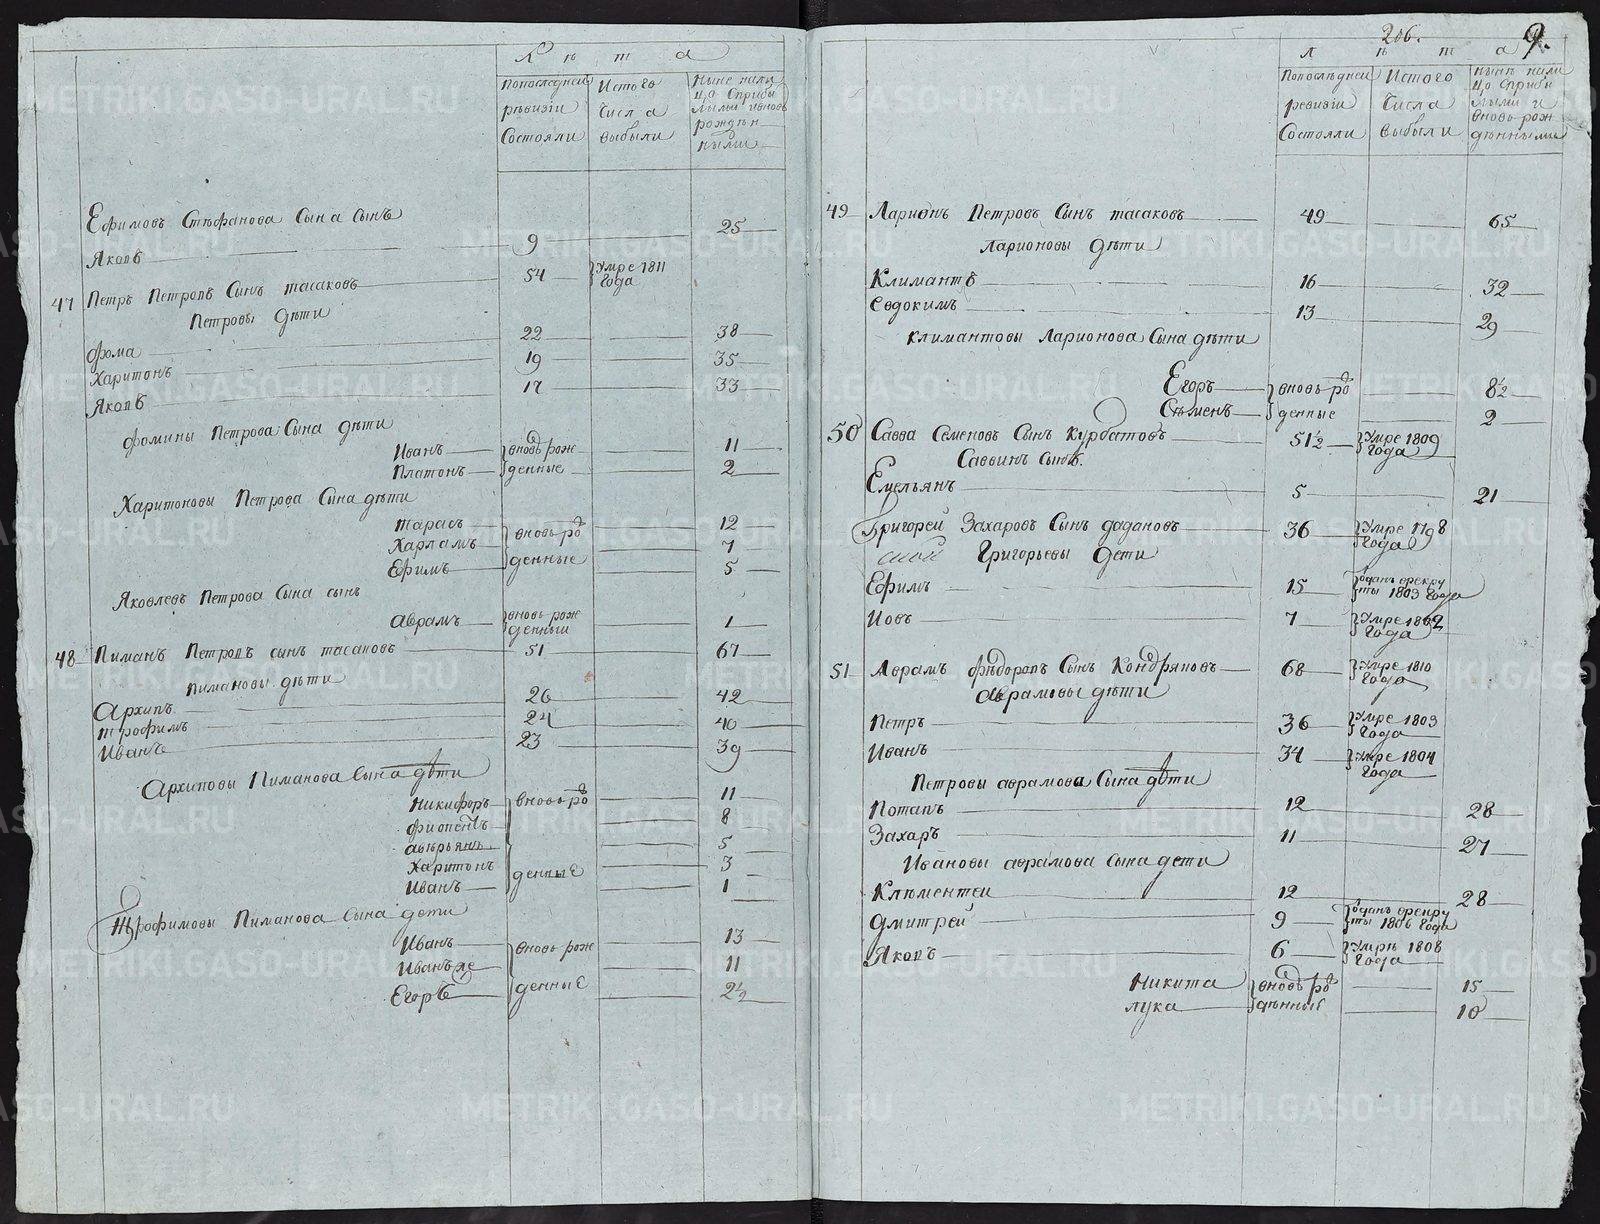 Лѣта
Попоследней ревизiи Состояли
Истого Числа выбыли
Ныне налицо Сприбылыми ивновь рожденными
Ефимовъ Стефанова Сына Сынъ
Яковъ 9 25
47 Петръ Петровъ Сынъ тасаковъ 54 Умре 1811 Года
Петровы дѣти
Фома 22 38
Харитонъ 19 35
Яковъ 17 33
Фомины Петрова Сына дѣти
Иванъ вновь рож 11
Платонъ денные 2
Харитоновы Петрова Сына дѣти
тарасъ 12
Харламъ вновь ро 7
Ефимъ денные 5
Яковлевъ Петрова Сына сынъ
Аврамъ вновь рож денный 1
48 Пиманъ Петровъ сынъ тасаковъ 51 67
пимановы дѣти
Архипъ 26 42
трофимъ 24 40
Иванъ 23 39
Архиповы Пиманова Сына дѣти
Никифоръ вновь ро 11
8
5
Харитонъ денные 3
Иванъ 1
Трофимовы Пиманова Сына дети
Иванъ вновь рож 13
Иванъ же 11
Егоръ денные 2½
206. 9.
лѣта
Попослѣдней ревизiи Состояли
Истого Числа выбыли
нынѣ налицо Сприбылыми и вновь рожденными
49 Ларионъ Петровъ Сынъ тасаковъ 49 65
Ларионовы дѣти
Климантъ 16 32
Евдокимъ 13 29
климантовы Ларионова Сына дѣти
Егоръ вновь ро 8½
Сѣменъ денные 2
50 Савва Семеновъ Сынъ Курбатовъ 51½ Умре 1809 Года
Саввинъ сынъ
Емельянъ 5 21
Григорей Захаровъ Сынъ дадановъ 36 Умре 1798 Года
Григорьевы дети
Ефимъ 15 Одатъ врекруты 1803 Года
Иовъ 7 Умре 1802 Года
51 Аврамъ Фѣдоровъ Сынъ Кондряновъ 68 Умре 1810 Года
аврамовы дѣти
Петръ 36 Умре 1803 Года
Иванъ 34 Умре 1804 Года
Петровы аврамова Сына дѣти
Потапъ 12 28
Захаръ 11 27
Ивановы аврамова Сына дети
Клѣментеи 12 28
Дмитрей 9 Одатъ врекруты 1806 Года
Яковъ 6 Умрѣ 1808 Года
Никита вновь ро 15
лука дѣнные 10
METRIKI.GASO-URAL.RU